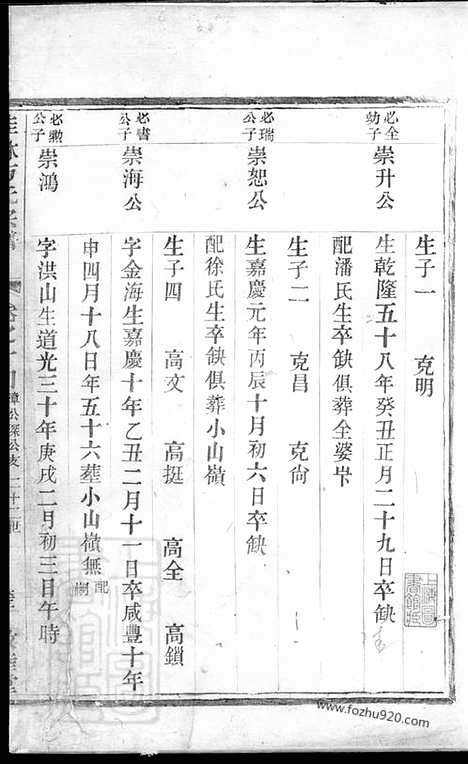 生子一 克明
必全幼子 崇升公 生乾隆五十八年癸丑正月二十九日卒缺
配潘氏生卒缺俱葬全婆
生子二 克昌 克尙
必瑞公子 崇恕公 生嘉慶元年丙辰十月初六日卒缺
配徐氏生卒缺俱葬小山嶺
生子四 高文 高挺 高全 高鎖
必書公子 崇海公 字金海生嘉慶十年乙丑二月十一日卒咸豐十年
申四月十八日年五十六葬小山嶺無配嗣
必勲公子 崇鴻 字洪山生道光三十年庚戌二月初三日午時
上海圖書館藏
www.fozhu920.com